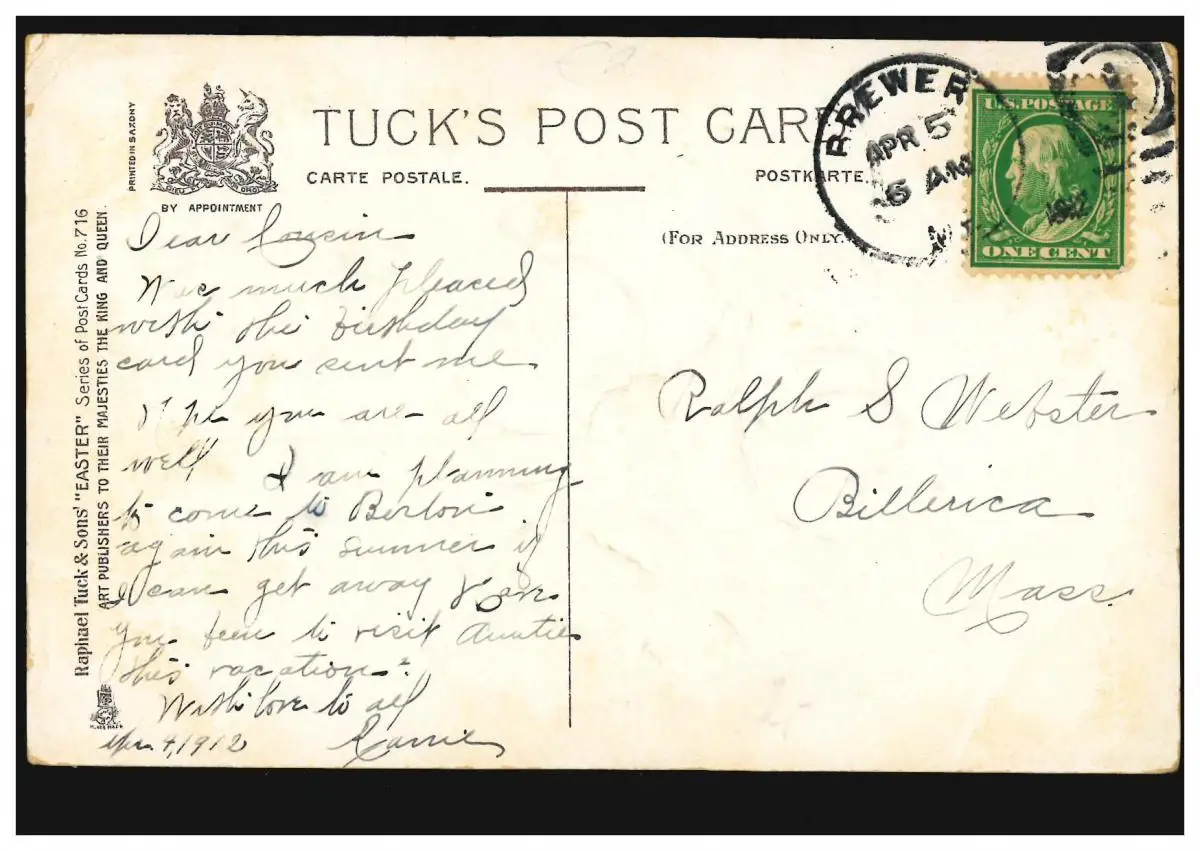 TUCK'S POST CARD
CARTE POSTALE.
POSTKARTE.
BY APPOINTMENT
(FOR ADDRESS ONLY.)
PRINTED IN SAXONY
Raphael Tuck & Sons' "EASTER" Series of Post Cards No. 716
ART PUBLISHERS TO THEIR MAJESTIES THE KING AND QUEEN.
BREWER
APR 5
6 AM
1912
U.S. POSTAGE
ONE CENT
Dear Cousin
Was much pleased
with the birthday
card you sent me
Hope you are all
well I am planning
to come to
again this summer if
I can get away Have
you been to visit Auntie
this vacation?
With love to all
Apr. 4, 1912
Ralph S Webster
Billerica
Mass.